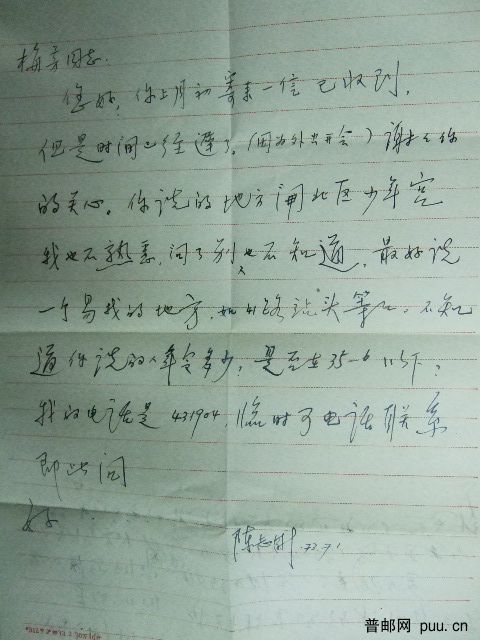 梅芳同志:
您好, 你上月初寄来一信已收到,
但是时间已经迟了, (因为外出开会) 谢谢你
的关心。你说的地方闸北区少年宫
我也不熟悉, 问了别人也不知道, 最好说
一个易找的地方, 如外路站头等等。不知
道你说的人年令多少, 是否在35-6以下,
我的电话是 431904, 临时可电话联系
即此问
好
陈 73.7.1
普邮网 puu.cn